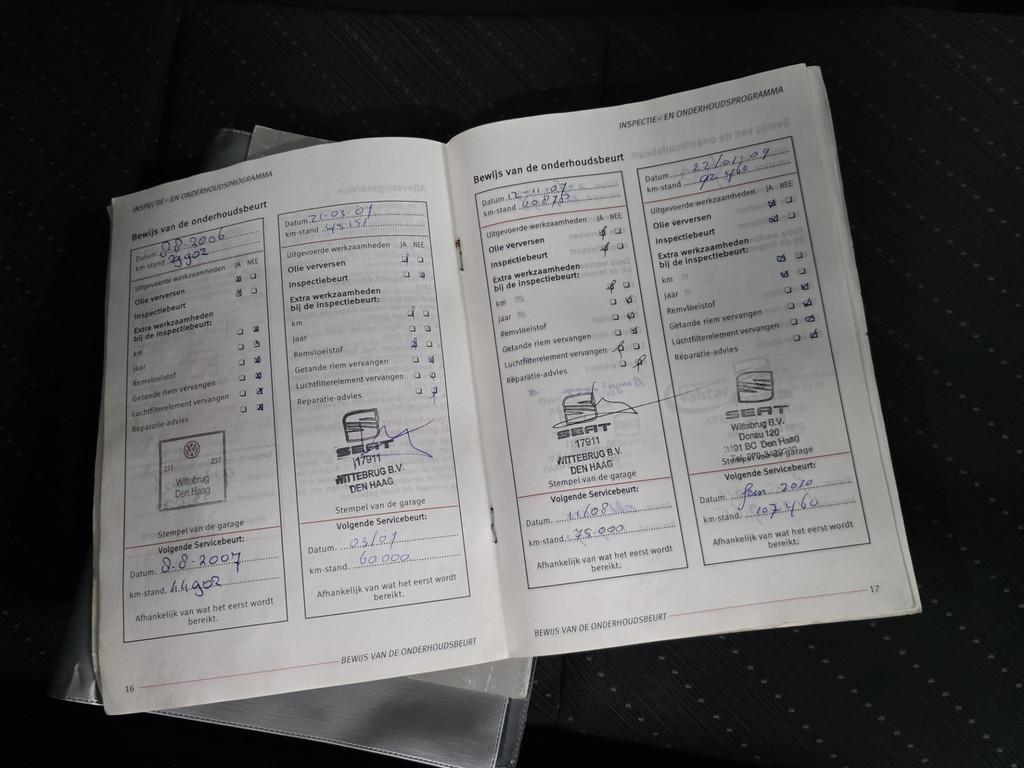 INSPECTIE- EN ONDERHOUDSPROGRAMMA
Bewijs van de onderhoudsbeurt
Datum. 8-8-2006
km-stand 29902
Uitgevoerde werkzaamheden JA NEE
Olie verversen
Inspectiebeurt
Extra werkzaamheden
bij de inspectiebeurt:
km
jaar
Remvloeistof
Getande riem vervangen
Luchtfilterelement vervangen
Reparatie-advies
211 237
Wittebrug
Den Haag
Stempel van de garage
Volgende Servicebeurt:
Datum. 8-8-2007
km-stand. 44902
Afhankelijk van wat het eerst wordt
bereikt.
Datum 21-03-07
km-stand 45151
Uitgevoerde werkzaamheden JA NEE
Olie verversen
Inspectiebeurt
Extra werkzaamheden
bij de inspectiebeurt:
km
jaar
Remvloeistof
Getande riem vervangen
Luchtfilterelement vervangen
Reparatie-advies
SEAT
17911
WITTEBRUG B.V.
DEN HAAG
Stempel van de garage
Volgende Servicebeurt:
Datum. 03/07
km-stand. 60000
Afhankelijk van wat het eerst wordt
bereikt.
16
BEWIJS VAN DE ONDERHOUDSBEURT
INSPECTIE- EN ONDERHOUDSPROGRAMMA
Bewijs van de onderhoudsbeurt
Datum 12-11-07
km-stand
Uitgevoerde werkzaamheden JA NEE
Olie verversen
Inspectiebeurt
Extra werkzaamheden
bij de inspectiebeurt:
km
jaar
Remvloeistof
Getande riem vervangen
Luchtfilterelement vervangen
Reparatie-advies
SEAT
17911
WITTEBRUG B.V.
DEN HAAG
Stempel van de garage
Volgende Servicebeurt:
Datum. 11/08
km-stand. 75.000
Afhankelijk van wat het eerst wordt
bereikt.
Datum 22/01-09
km-stand 92460
Uitgevoerde werkzaamheden JA NEE
Olie verversen
Inspectiebeurt
Extra werkzaamheden
bij de inspectiebeurt:
km
jaar
Remvloeistof
Getande riem vervangen
Luchtfilterelement vervangen
Reparatie-advies
SEAT
Wittebrug B.V.
Donau 120
2491 BC Den Haag
Stempel van de garage
Volgende Servicebeurt:
Datum. Jan 2010
km-stand. 107460
Afhankelijk van wat het eerst wordt
bereikt.
BEWIJS VAN DE ONDERHOUDSBEURT
17